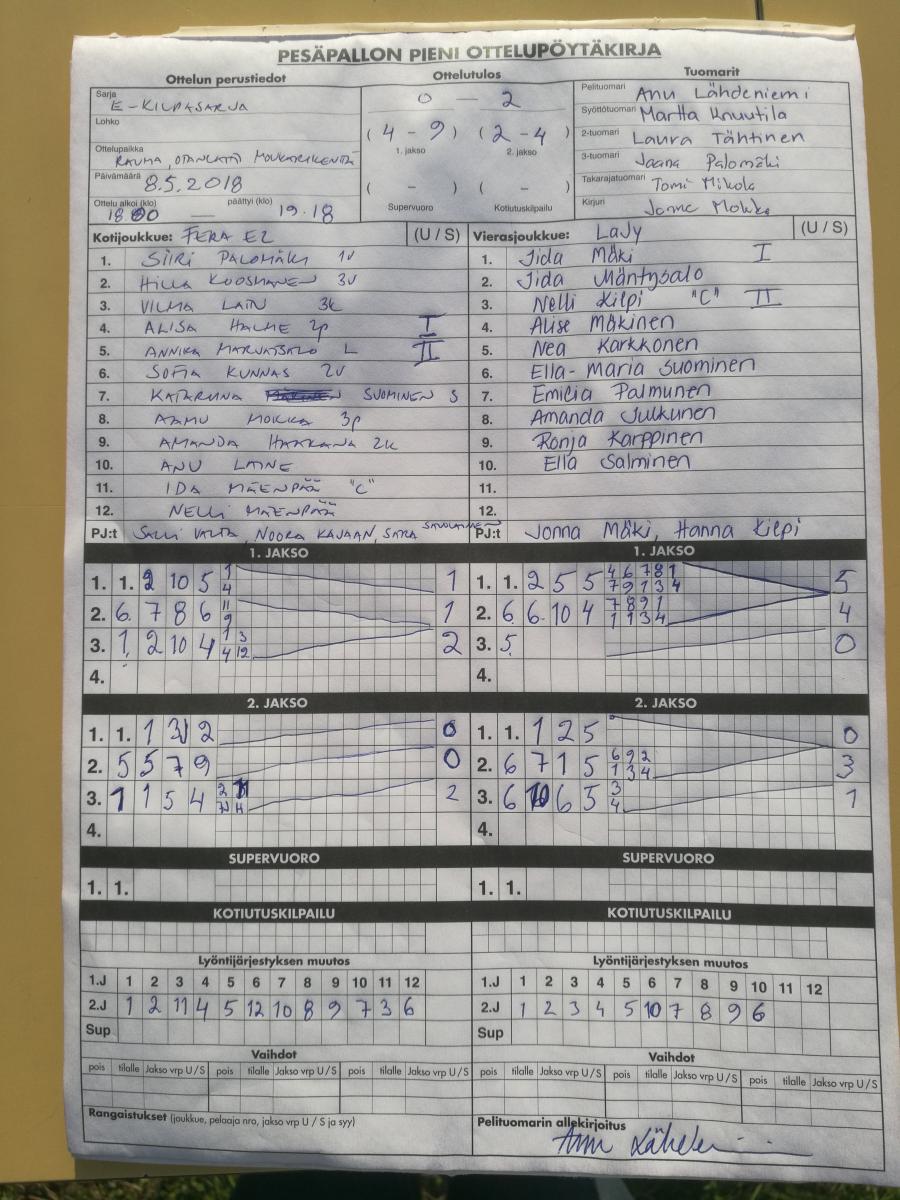 PESÄPALLON PIENI OTTELUPÖYTÄKIRJA
Ottelun perustiedot
Ottelutulos
Tuomarit
Sarja E-KILPASARJA
Lohko
Ottelupaikka RAUMA, OTANLAHTI
Päivämäärä 8.5.2018
Ottelu alkoi (klo) päättyi (klo)
18 00 — 19.18
0 — 2
(4 - 9) (2 - 4)
1. jakso 2. jakso
( - ) ( - )
Supervuoro Kotiutuskilpailu
Pelituomari Anu Lähdeniemi
Syöttötuomari Martta Knuutila
2-tuomari Laura Tähtinen
3-tuomari Jaana Palomäki
Takarajatuomari Tomi Mikola
Kirjuri
Kotijoukkue: FERA E2 (U / S)
1. SIIRI PALOMÄKI 1V
2. HILLA KOOSKANEN 3V
3. VILMA LAIN 3K
4. ALISA HALME 2p I
5. ANNIKA L II
6. SOFIA KUNNAS 2V
7. KATARIINA SUOMINEN S
8. AAMU MOKKA 3p
9. AMANDA HAAKANA 2K
10. ANU LAINE
11. IDA MÄENPÄÄ "C"
12. NELLI MÄENPÄÄ
PJ:t SALLI VALTA, NOORA KAJAAN, SARA SAVOLAINEN
Vierasjoukkue: LaJy (U / S)
1. Iida Mäki I
2. Iida Mäntysalo
3. Nelli Kilpi "C" II
4. Alise Mäkinen
5. Nea Karkkonen
6. Ella-Maria Suominen
7. Emilia Palmunen
8. Amanda Julkunen
9. Ronja Karppinen
10. Ella Salminen
11.
12.
PJ:t Jonna Mäki, Hanna Kilpi
1. JAKSO
1. 1. 2 10 5 1 4 1
2. 6. 7 8 6 11 9 1
3. 1. 2 10 4 1 3 4 12 2
4.
2. JAKSO
1. 1. 1 3 2 0
2. 5 5 7 9 0
3. 1 1 5 4 2
4.
SUPERVUORO
1. 1.
KOTIUTUSKILPAILU
Lyöntijärjestyksen muutos
1.J 1 2 3 4 5 6 7 8 9 10 11 12
2.J 1 2 11 4 5 12 10 8 9 7 3 6
Sup
Vaihdot
pois tilalle Jakso vrp U/S pois tilalle Jakso vrp U/S pois tilalle Jakso vrp U/S
Rangaistukset (joukkue, pelaaja nro, jakso vrp U / S ja syy)
1. JAKSO
1. 1. 2 5 5 4 6 7 8 1 7 9 1 3 4 5
2. 6 6 10 4 7 8 9 1 1 1 3 4 4
3. 5. 0
4.
2. JAKSO
1. 1. 1 2 5 0
2. 6 7 1 5 6 9 2 1 3 4 3
3. 6 10 6 5 3 4 1
4.
SUPERVUORO
1. 1.
KOTIUTUSKILPAILU
Lyöntijärjestyksen muutos
1.J 1 2 3 4 5 6 7 8 9 10 11 12
2.J 1 2 3 4 5 10 7 8 9 6
Sup
Vaihdot
pois tilalle Jakso vrp U/S pois tilalle Jakso vrp U/S pois tilalle Jakso vrp U/S
Pelituomarin allekirjoitus